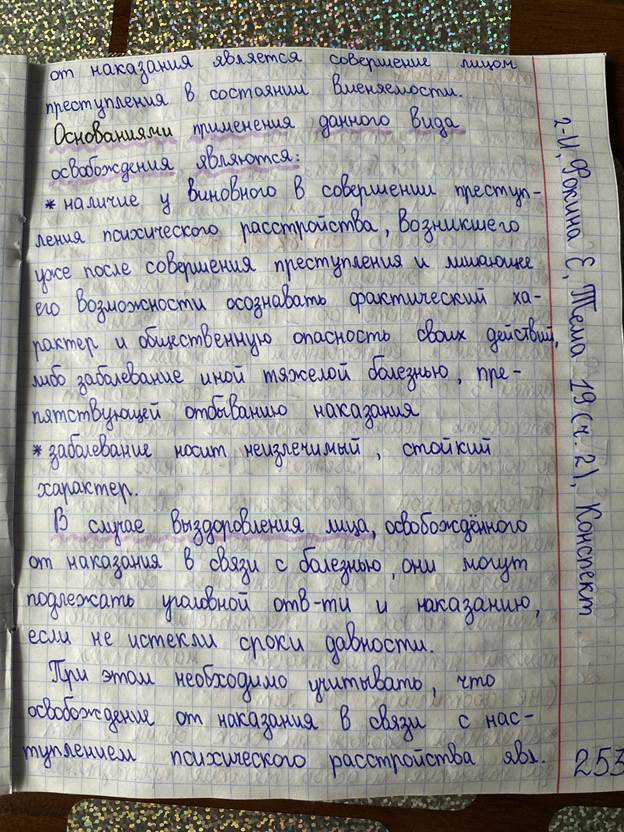 от наказания является совершение лицом
преступления в состоянии вменяемости.
Основаниями применения данного вида
освобождения являются:
* наличие у виновного в совершении преступ-
ления психического расстройства, возникшего
уже после совершения преступления и лишающее
его возможности осознавать фактический ха-
рактер и общественную опасность своих действий,
либо заболевание иной тяжелой болезнью, пре-
пятствующей отбыванию наказания
* заболевание носит неизлечимый, стойкий
характер.
В случае выздоровления лица, освобождённого
от наказания в связи с болезнью, они могут
подлежать уголовной отв-ти и наказанию,
если не истекли сроки давности.
При этом необходимо учитывать, что
освобождение от наказания в связи с нас-
туплением психического расстройства явл.
2-И, Фокина Е, Тема 19 (ч. 2), Конспект
253